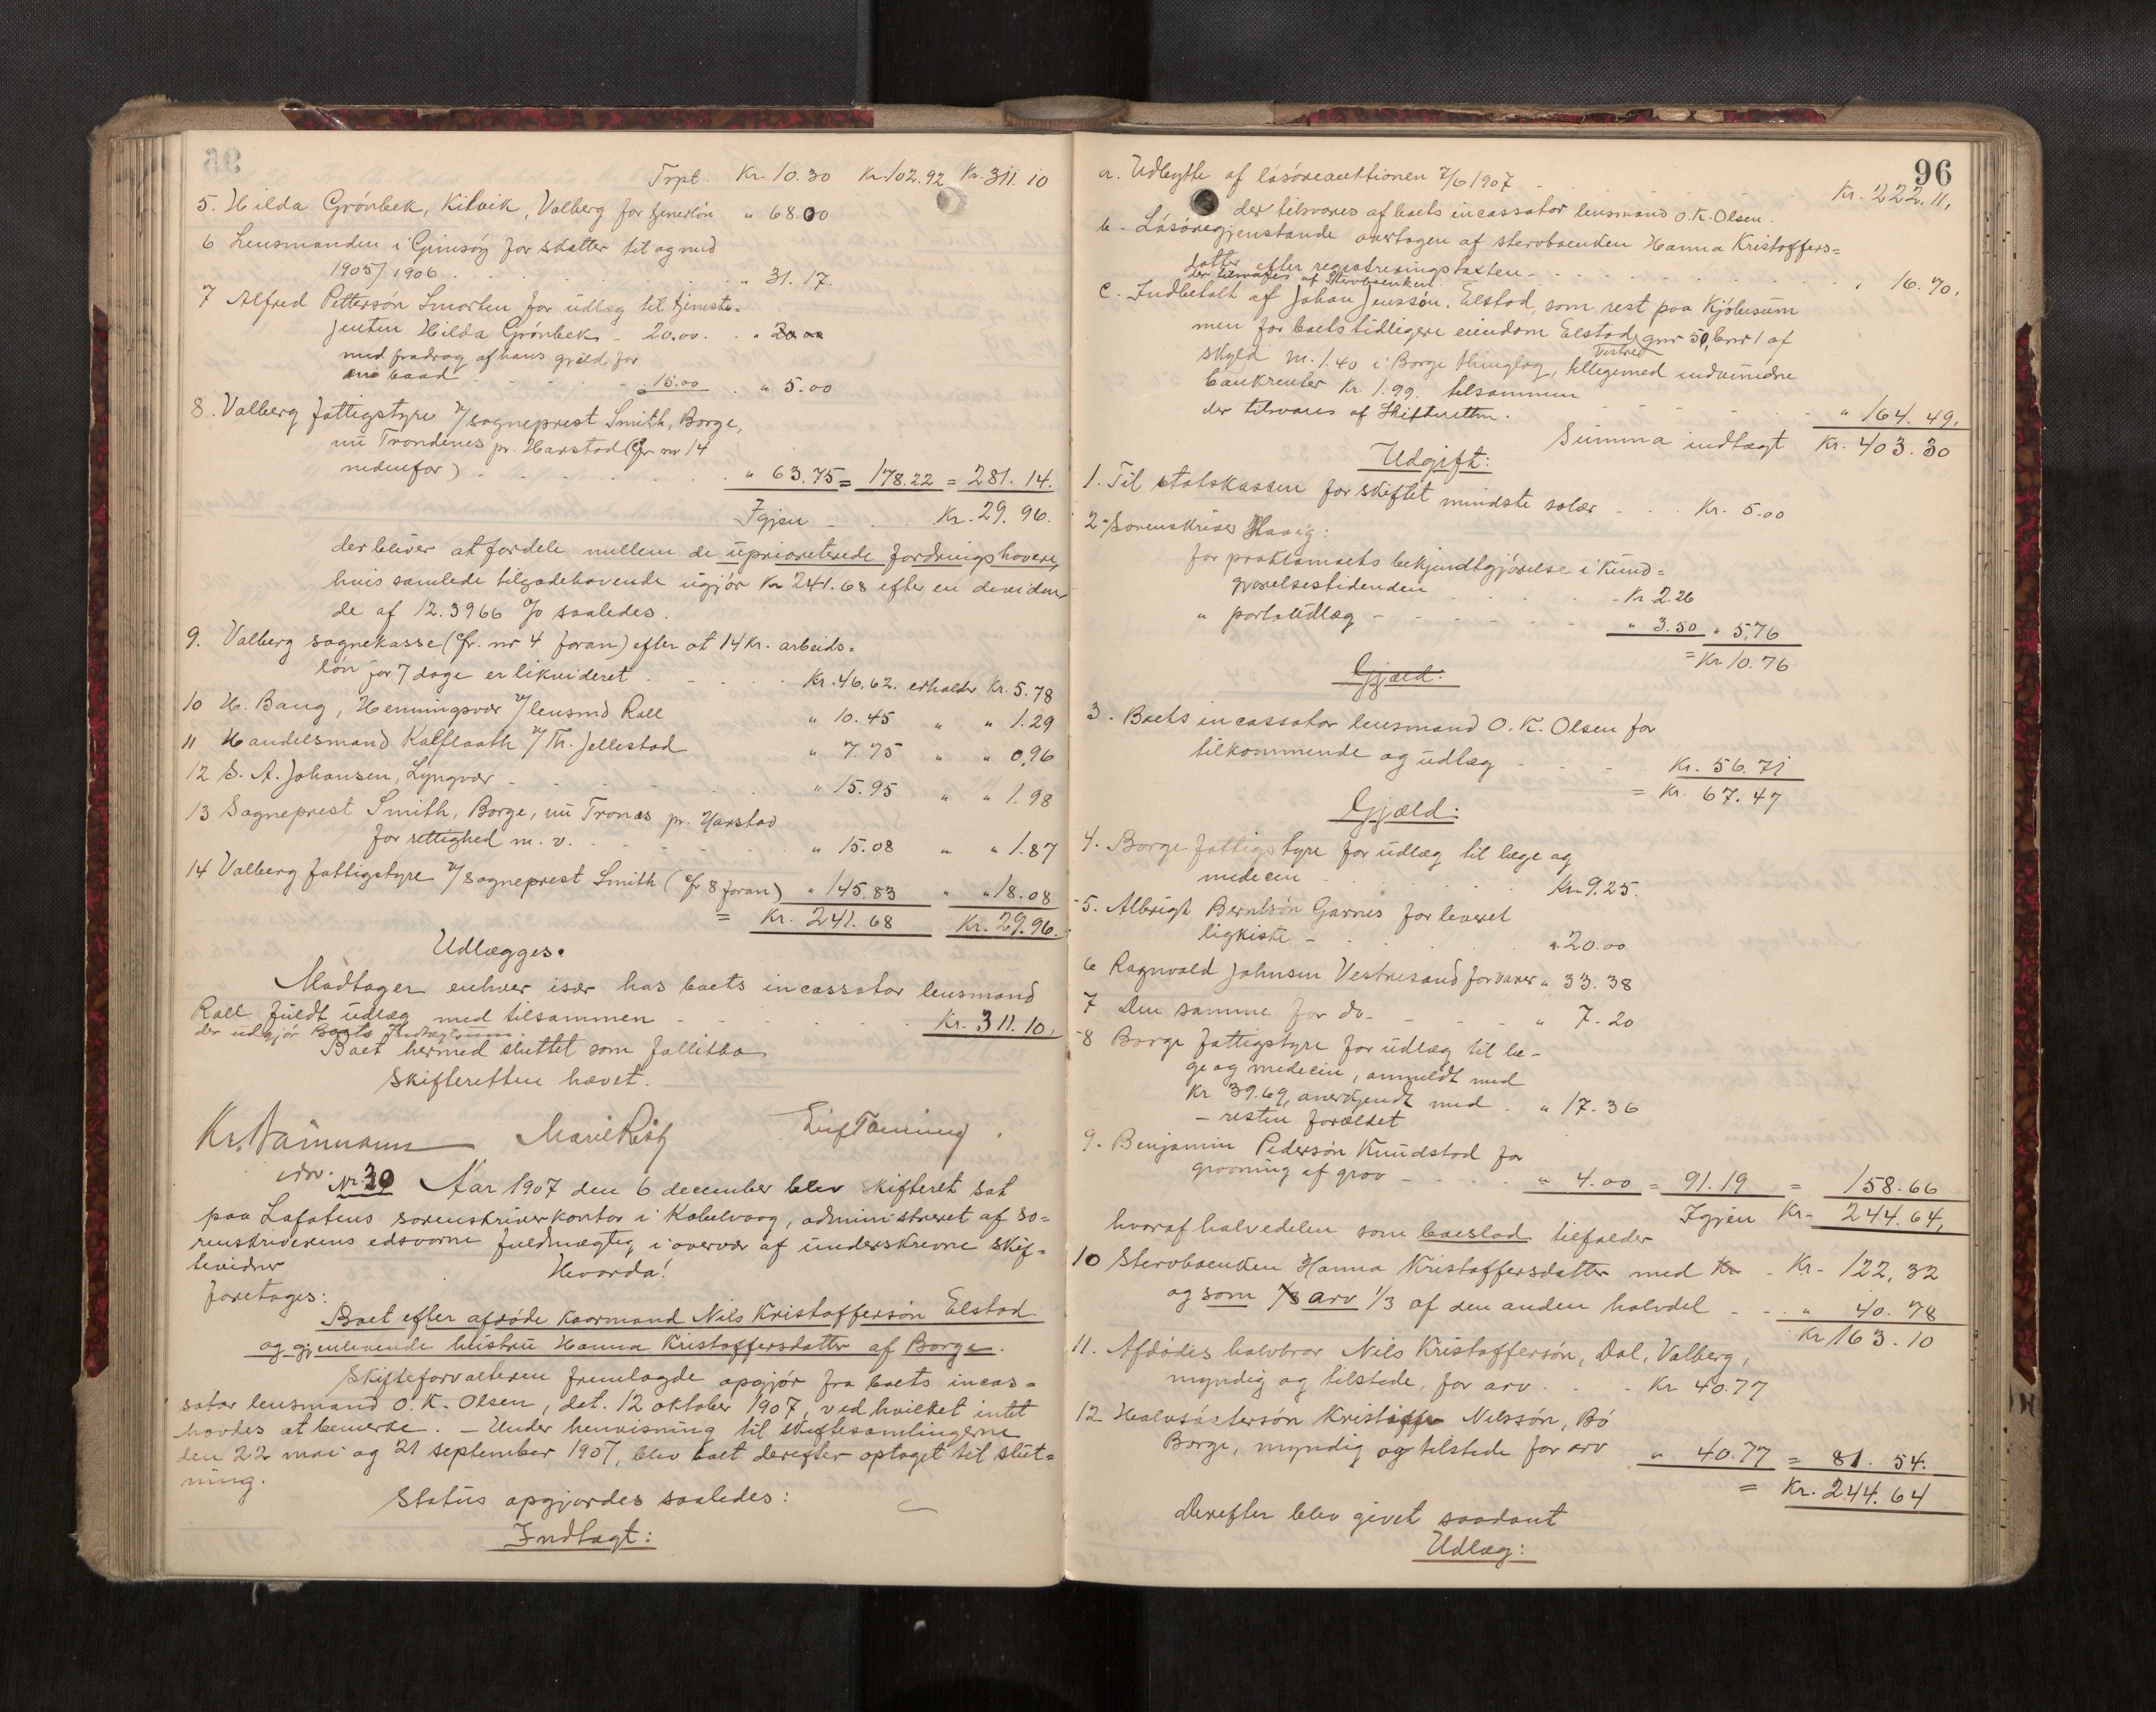 Trpt. Kr. 10.30 Kr. 102.92 Kr. 311.10
5. Hilda Grónbek, Kilvik, Valberg for tjenerlón „ 68.00
6 Lensmanden i Gimsóy for skatter til og med
1905/1906 . . . . „ 31.17.
7 Alfred Pettersón Smorten for udlæg til tjeneste=
jenten Hilda Grónbek - 20.00. . „ 20.00
med fradrag af hans gjæld for
en baad - - - - - 15.00 . „ 5.00
8. Valberg fattigstyre v/ sogneprest Smith, Borge,
nu Trondenes pr. Harstad (Cfr nr 14
nedenfor) - - - - „ 63.75 = 178.22 = 281.14.
Igjen - . . Kr. 29.96.
der bliver at fordele mellem de uprioriterede fordringshavere,
hvis samlede tilgodehavende ugjór Kr 241.68 efter en deviden
de af 12.3966 % saaledes.
9. Valberg sognekasse (Cfr. nr 4 foran) efter at 14 Kr. arbeids=
lón for 7 dage er likvideret - - - . Kr. 46.62. erholder Kr. 5.78
10 H. Bang, Henningsvær v/ lensmd Rall „ 10.45 „ „ 1.29
11 Handelsmand Kalfloath v/ Th. Jellestad „ 7.75 „ „ 0,96
12 S. A. Johansen, Lyngvær - . . . . „ 15.95 „ „ 1.98
13 Sogneprest Smith, Borge, nu Tronæs pr. Harstad
for rettighed m. v. - - - - „ 15.08 „ „ 1.87
14 Valberg fattigstyre v/ sogneprest Smith (Cfr 8 foran) „ 145.83 „ „ 18.08
= Kr. 241.68 Kr. 29.96.
Udlægges.
Modtager enhver især hos boets incassator lensmand
Rall fuldt udlæg med tilsammen - - - - - Kr. 311.10.
der udgjór Boets Indtægtssum.
Boet hermed sluttet som fallitbo
Skifteretten hævet.
Marie
Nr. 30 Aar 1907 den 6 december blev skifteret sat
paa Lofotens sorenskriverkontor i Kabelvaag, administreret af so=
renskriverens edsvorne fuldmægtig i overvær af underskrevne skif=
tevidner
Hvorda!
foretages:
Boet efter afdóde kaarmand Nils Kristoffersón Elstad
og gjenlevende hustru Hanna Kristoffersdatter af Borge.
Skifteforvalteren fremlagde opgjór fra boets incas=
sator lensmand O. K. Olsen, dat. 12 oktober 1907, ved hvilket intet
havdes at bemerke. - Under henvisning til skiftesamlingerne
den 22 mai og 21 september 1907, blev boet derefter optaget til slut=
ning.
Status opgjordes saaledes:
Indtægt:
96
a. Udbytte af lósóreauktionen 7/6 1907 - . . . . Kr. 222.11,
der tilsvares af boets incassator lensmand O. K. Olsen.
b. Lósóregjenstande overtagen af stervboenken Hanna Kristoffers=
datter efter registreringstaxten - - . . . „ 16.70.
der tilsvares af Stervboenken.
c. Indbetalt af Johan Jenssón. Elstad, som rest paa kjóbesum
men for boets tidligere eiendom Elstad, gnr 50, bnr 1 af
Vestred
skyld m. 1.40 i Borge thinglag, tillegemed indvundne
bankrenter Kr 1.99. tilsammen
der tilsvares af Skifteretten. - - - - - „ 164.49.
Summa indtægt Kr. 403.30
Udgift:
1. Til statskassen for skiftet mindste salær - . . Kr. 5.00
2 Sorenskriver Haavig:
for proklamaets bekjendtgjórelse i Kund=
gjórelsestidenden . . . . - Kr. 2.26
„ portoudlæg - - - - - „ 3.50 „ 5.76
= Kr. 10.76
Gjæld:
3. Boets incassator lensmand O. K. Olsen for
tilkommende og udlæg - - - . Kr. 56.71
= Kr. 67.47
Gjæld:
4. Borge fattigstyre for udlæg til læge og
medecin - . . . . . Kr. 9.25.
5. Albrigt Berntsón Garnes for leveret
ligkiste - . . . . „ 20.00
6 Ragnvald Johnsen Vestresand for varer „ 33.38
7 Den samme for do - - - - - „ 7.20
8 Borge fattigstyre for udlæg til læ-
ge og medecin, anmeldt med
Kr 39.69, anerkjendt med . „ 17.36
- resten forældet
9. Benjamin Pedersón Knudstad for
gravning af grav - - . . . „ 4.00 = 91.19 = 158.66
Igjen Kr. 244.64,
hvoraf halvedelen som boeslod tilfalder
10 Stervboenken Hanna Kristoffersdatter med Kr - Kr. 122,32
og som 1/3 arv 1/3 af den anden halvdel - - . „ 40.78
Kr 163.10
11. Afdódes halvbror Nils Kristoffersón, Dal, Valberg,
myndig og tilstede, for arv . . - Kr 40.77
12 Halvsóstersón Kristoffer Nilssón, Bó
Borge, myndig og tilstede for arv „ 40.77 = 81.54.
= Kr. 244.64
Derefter blev givet saadant
Udlæg: